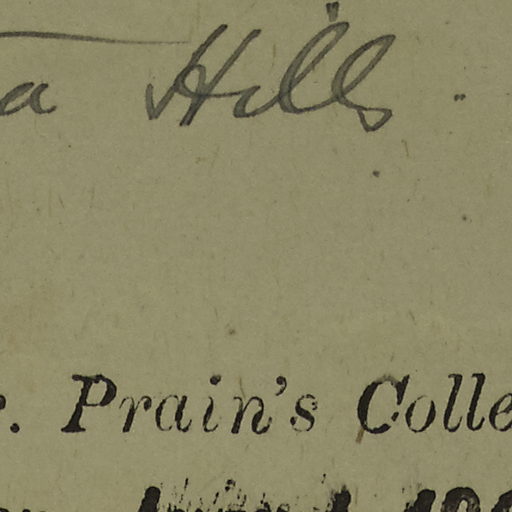 a Hills.
r. Prain's Colle